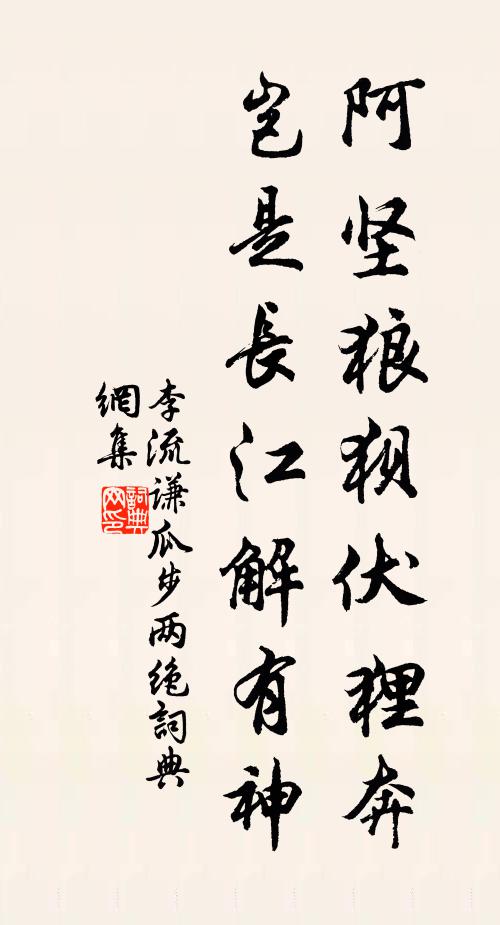 阿坚狼狈伏狸奔
岂是長江解有神
李流谦瓜步两绝詞典
網集
詞典
网印